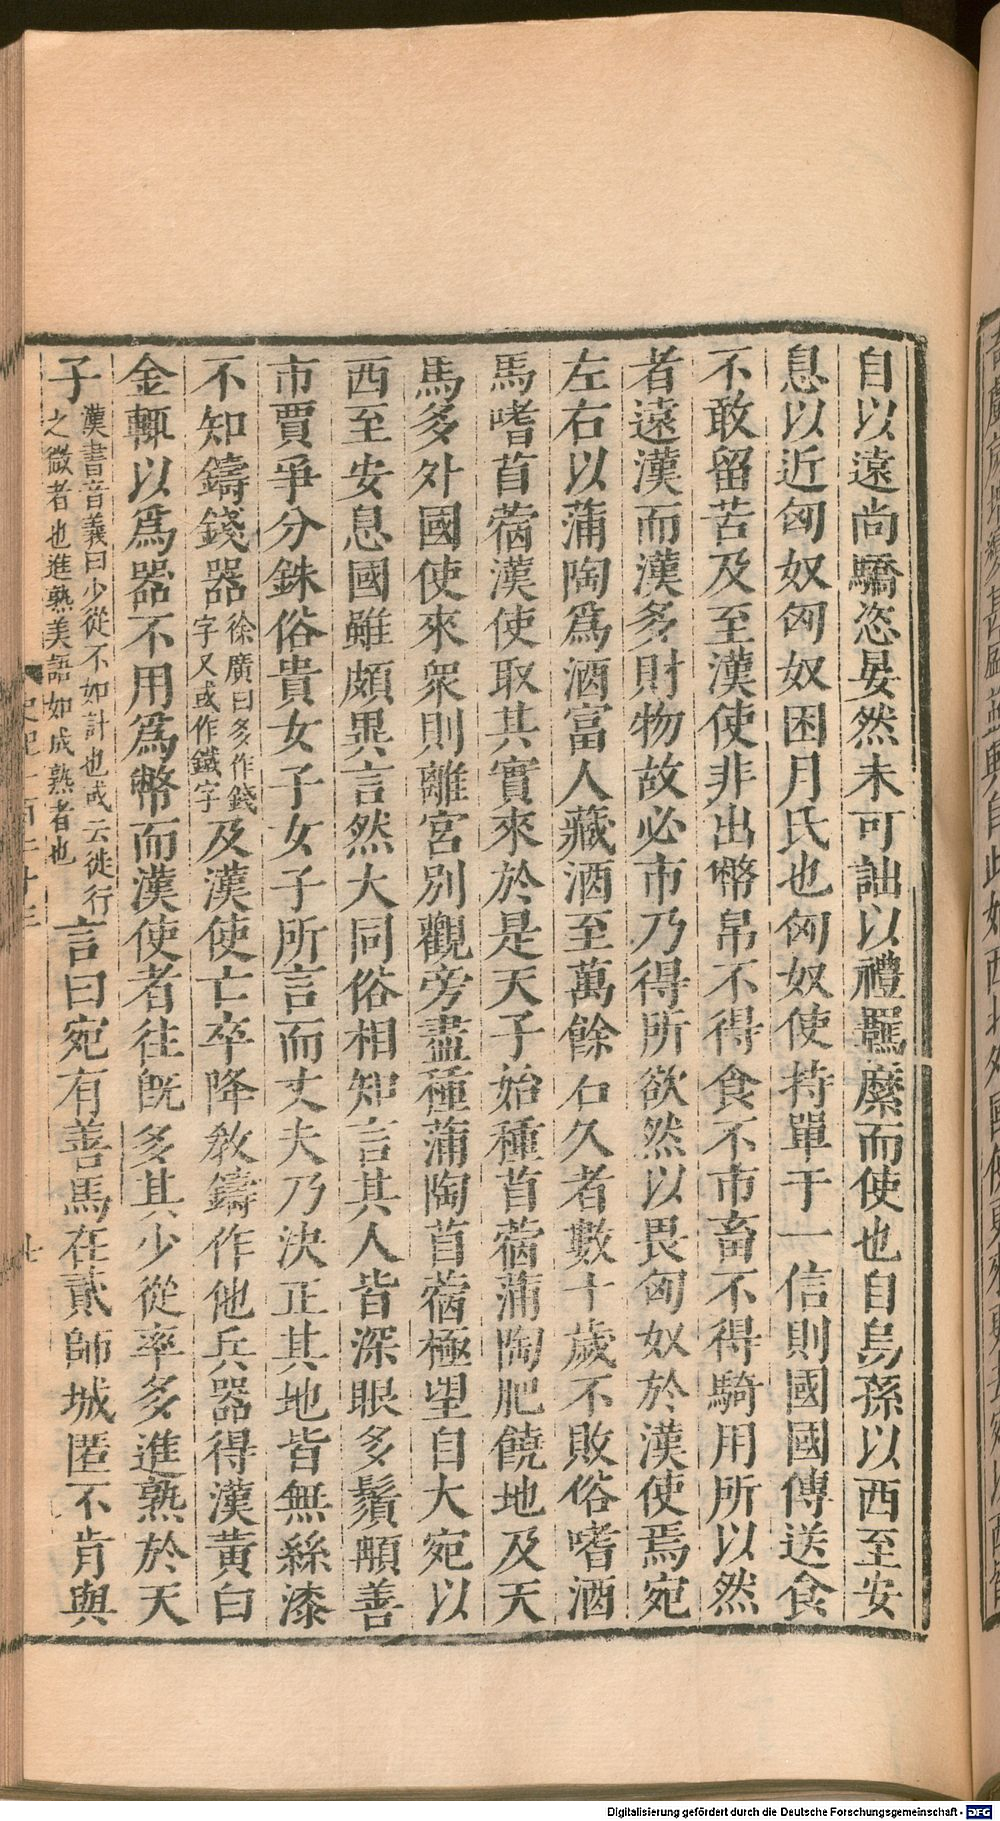 自以遠尚驕恣晏然未可詘以禮羈縻而使也自烏孫以西至安
息以近匈奴匈奴困月氏也匈奴使持單于一信則國國傳送食
不敢留苦及至漢使非出幣帛不得食不市畜不得騎用所以然
者遠漢而漢多財物故必市乃得所欲然以畏匈奴於漢使焉宛
左右以蒲陶爲酒富人藏酒至萬餘石久者數十歲不敗俗嗜酒
馬嗜苜蓿漢使取其實來於是天子始種苜蓿蒲陶肥饒地及天
馬多外國使來衆則離宮別觀旁盡種蒲陶苜蓿極望自大宛以
西至安息國雖頗異言然大同俗相知言其人皆深眼多鬚髥善
市賈爭分銖俗貴女子女子所言而丈夫乃決正其地皆無絲漆
不知鑄錢器徐廣曰多作錢字又或作鐵字及漢使亡卒降敎鑄作他兵器得漢黃白
金輒以爲器不用爲幣而漢使者往旣多其少從率多進熟於天
子漢書音義曰少從不如計也或云徙行之微者也進熟美語如成熟者也言曰宛有善馬在貳師城匿不肯與
史記一百二十三
廿
Digitalisierung gefördert durch die Deutsche Forschungsgemeinschaft - DFG